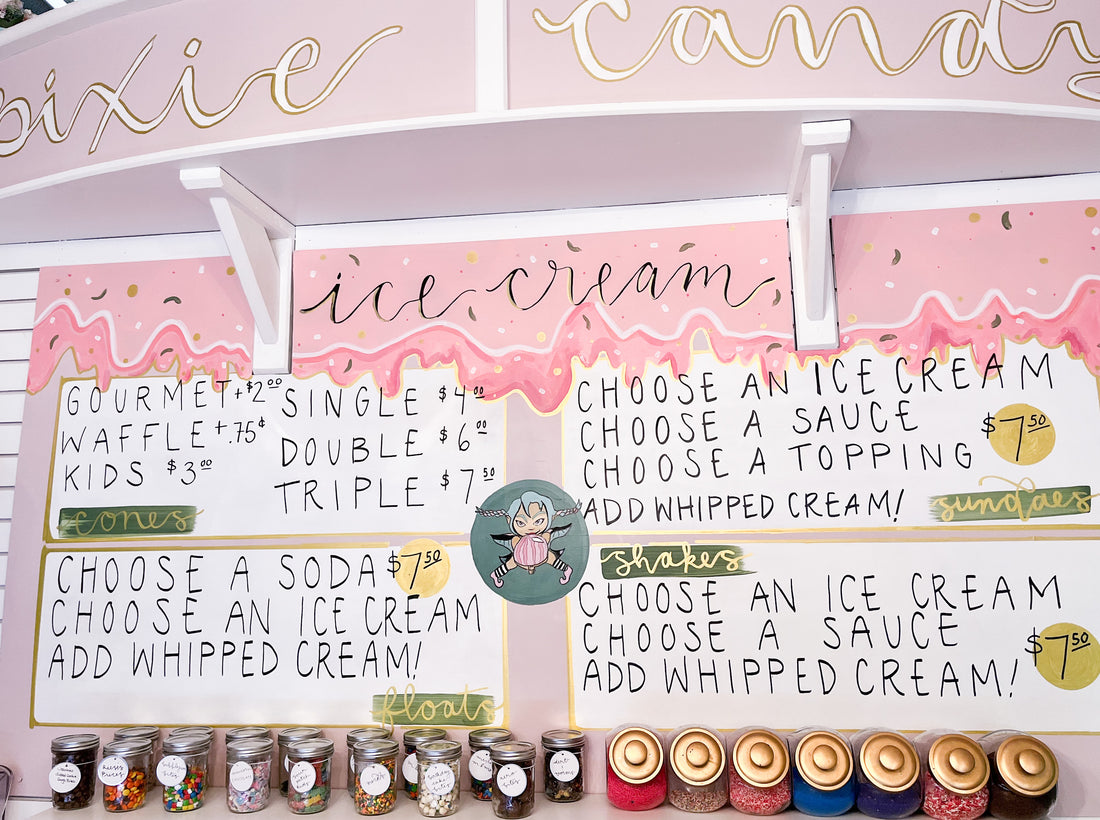 pixie candy
ice cream
GOURMET +$2.00
WAFFLE +.75¢
KIDS $3.00
SINGLE $4.00
DOUBLE $6.00
TRIPLE $7.50
cones
CHOOSE AN ICE CREAM
CHOOSE A SAUCE
CHOOSE A TOPPING
$7.50
ADD WHIPPED CREAM!
sundaes
CHOOSE A SODA $7.50
CHOOSE AN ICE CREAM
ADD WHIPPED CREAM!
floats
shakes
CHOOSE AN ICE CREAM
CHOOSE A SAUCE
$7.50
ADD WHIPPED CREAM!